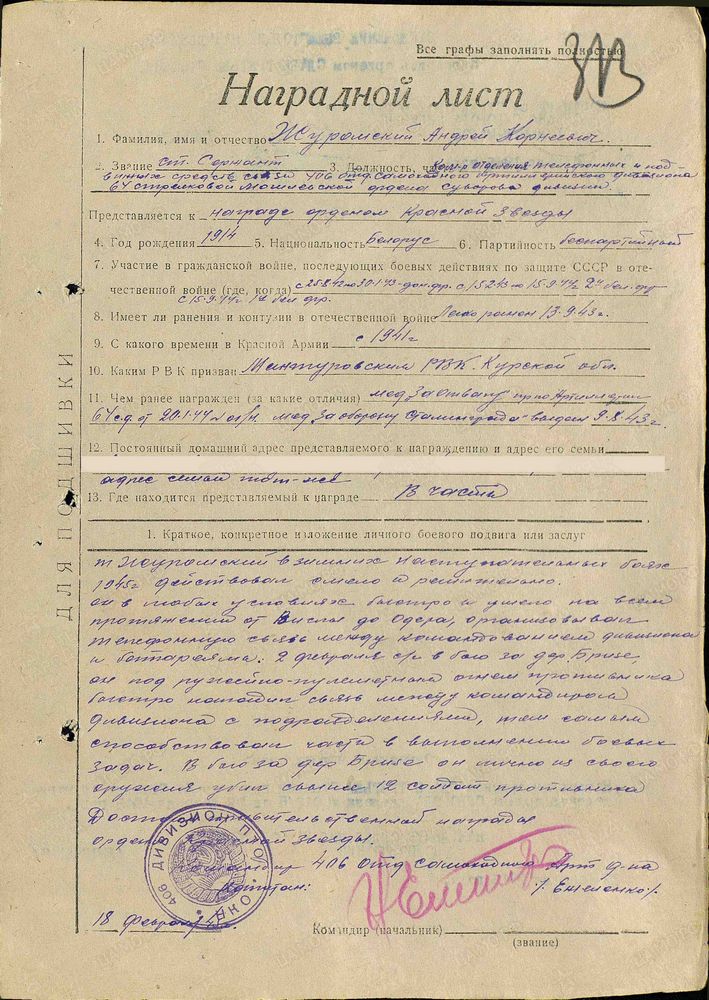 Все графы заполнять полностью
Наградной лист
1. Фамилия, имя и отчество Журомский Андрей Корнеевич.
2. Звание ст. Сержант 3. Должность, часть Ком-р отделения телефонных и под-
вижных средств связи 406 отд. самоходного артиллерийского дивизиона
64 стрелковой Могилевской ордена Суворова дивизии.
Представляется к награде орденом Красной Звезды
4. Год рождения 1914 5. Национальность Белорус 6. Партийность беспартийный
7. Участие в гражданской войне, последующих боевых действиях по защите СССР в оте-
чественной войне (где, когда) с 25.8.42 по 30.1.43 дон. фр. с 15.2.43 по 15.9.44 2й бел. фр
с 15.9.44г. 1й бел. фр.
8. Имеет ли ранения и контузии в отечественной войне Легко ранен 13.9.43г.
9. С какого времени в Красной Армии с 1941г
10. Каким РВК призван Мантуровским РВК. Курской обл.
11. Чем ранее награжден (за какие отличия) мед. За отвагу пр. по Артиллерии
64 сд. от 20.1.44 мед. За оборону Сталинграда выдан 9.8.43г.
12. Постоянный домашний адрес представляемого к награждению и адрес его семьи
адрес семьи тот-же
13. Где находится представляемый к награде В части
1. Краткое, конкретное изложение личного боевого подвига или заслуг
т Журомский в зимних наступательных боях
1945г действовал смело и решительно.
он в любых условиях быстро и умело на всем
протяжении от Вислы до Одера, организовывал
телефонную связь между командованием дивизиона
и боттареями. 2 февраля с/г в бою за дер. Бризе,
он под ружейно-пулеметным огнем противника
быстро наводил связь между командиром
дивизиона с подразделениями, тем самым
способствовал части в выполнении боевых
задач. В бою за дер Бризе он лично из своего
оружия убил свыше 12 солдат противника
Достоин правительственной награды
ордена Красной Звезды.
Командир 406 отд самоходного Арт д-на
Капитан: /. Емелепко/.
18 Февраля 45г.
Командир (начальник)
(звание)
ДЛЯ ПОДШИВКИ
406 ДИВИЗИОН